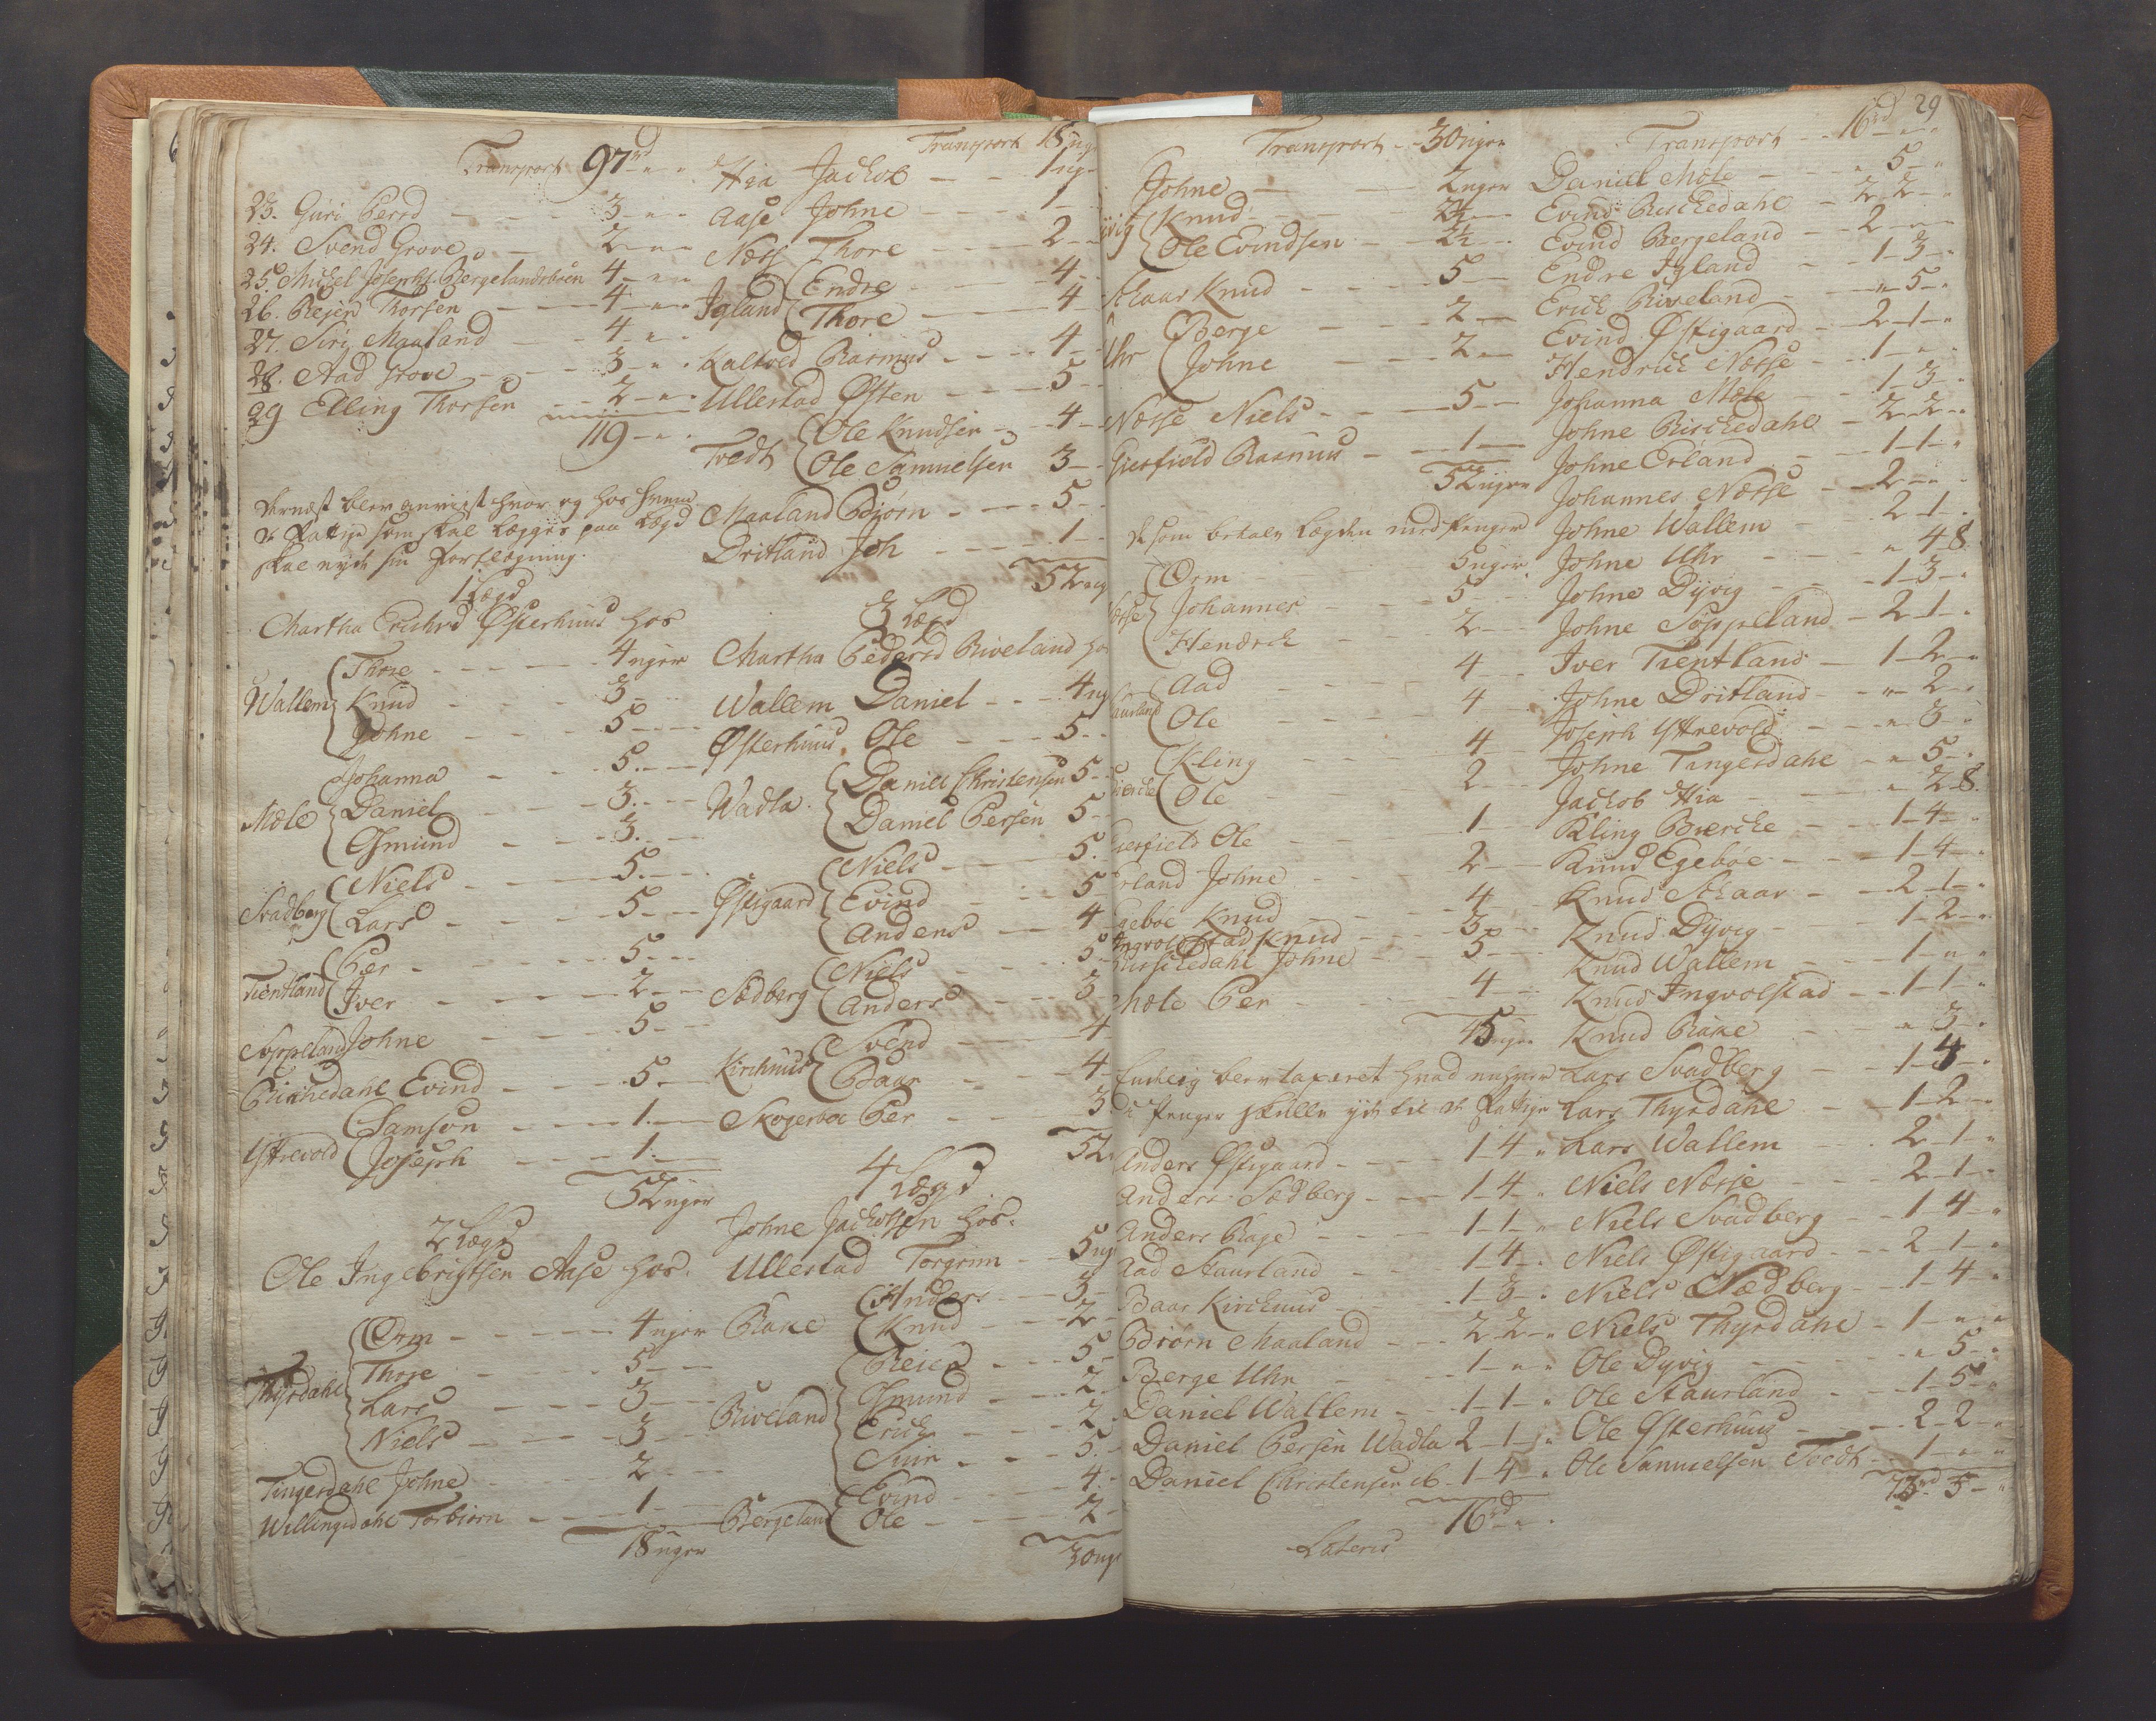 Transport 97rd
23. Guri Persd - - - 3 - " -
24. Svend Grove - - 2 - " -
25. Michel Josephs. Bergelandsbøen 4 - " -
26. Reier Thorsen - - 4 - " -
27. Siri Maaland - - 4 - " -
28. Aad Grove - - - 3 - " -
29 Elling Thorsen - - 2 - " -
119 - " -
Dernæst blev anviist hvor og hos hvem
de Fattige som skal lægges paa Lægd
skal nyde sin Forflegning.
1 Lægd
Martha Erichsd Østerhuus hos
Wallem
Thore - - - 4 uger
Knud - - - 3
Johne - - - 5
Mæle
Johanna - - 5
Daniel - - - 3
Osmund - - - 3
Svadberg
Niels - - - 5
Lars - - - 5
Tientland
Per - - - 5
Iver - - - 2
Soppeland Johne - - 5
Rischedahl Evind - - 5
Ystrevold
Samson - - 1
Joseph - - 1
52 uger
2 Lægd
Ole Ingebrigtsen Aase hos.
Thysdahl
Orm - - - 4 uger
Thore - - - 5
Lars - - - 3
Niels - - - 3
Tingesdahl Johne - - 2
Willingsdahl Torbiørn - - 1
18 uger
Transport 18 ug
Hia Jachob - - 1 ug
Aase Johne - - - 1
Næss Thore - - - 2
Igland
Endre - - - 4
Thore - - - 4
Kaltved Rasmus - - 4
Ullestad Østen - - 5
Tvedt
Ole Knudsen - - 4
Ole Samuelsen 3
Maaland Biørn - - 5
Dritland Joh - - - 1
52 ug
3 Lægd
Martha Pedersd Riveland hos
Wallem Daniel - - 4 ug
Østerhuus Ole - - 5
Wadla
Daniel Christensen 5
Daniel Persen 5
Østigaard
Niels - - - 5
Evind - - - 5
Anders - - 4
Sædberg
Niels - - - 5
Anders - - 3
Kirchhuus
Svend - - - 4
Baar - - - 4
Skogerboe Per - - 3
52
4 Lægd
Johne Jachobsen hos.
Ullestad Torgrim - 5 ug
Rake
Anders - - 3
Knud - - 2
Riveland
Reier - - - 5
Osmund - - 2
Erich - - - 2
Siur - - - 5
Bergeland
Evind - - - 4
Ole - - - 2
30 ug
29
Transport - - 30 uger
Johne - - 2 uger
Knud - - 2½
Ole Evindsen - - 2½
Knud - - 5
Uhr
Berge - - - 2
Johne - - - 2
Næsse Niels - - 5
Giesfield Rasmus - - 1
52 uger
de som betale Lægden med Penger
Orm - - 5 uger
Johannes - - 5
Hendrich - - 2
Aad - - - 4
Ole - - - 4
Kling - - - 4
Ole - - - 2
Giesfield Ole - - 1
Erland Johne - - 2
Egeboe Knud - - 4
Ingvolstad Knud - - 3
Rischedahl Johne - - 5
Mæle Per - - - 4
45 uger
Endelig blev taxeret hvad enhver
i Penger skulle yde til de Fattige
Anders Østigaard - - 1-4 "
Anders Sædberg - - 1-4 "
Anders Rage - - 1-1 "
Aad Staurland - - 1-4 "
Baar Kirchuus - - 1-3 "
Biørn Maaland - - 2-2 "
Berge Uhr - - 1 - " "
Daniel Wallem - - 1-1 "
Daniel Persen Wadla 2-1 "
Daniel Christensen ib. 1-4 "
16rd
Lateris
Transport - - 16rd
Daniel Mæle - - - " 5 "
Evind Rischedahl - 2-2 "
Evind Bergeland - 2 - "
Endre Igland - - 1-3 "
Erich Riveland - - " 5 "
Evind Østigaard - 2-1 "
Hendrich Næsse - 1 - "
Johanna Mæle - - 1-3 "
Johne Rischedahl - 2-2 "
Johne Erland - - 1-1 "
Johannes Næsse - 2 - "
Johne Wallem - - 2-1 "
Johne Uhr - - - " 4-8
Johne Dyvig - - 1-3 "
Johne Soppeland - 2-1 "
Iver Tientland - 1-2 "
Johne Dritland - - " 2 "
Joseph Ystrevold - - " 3 "
Johne Tingesdahl - " 5 "
Jachob Hia - - " 2-8
Kling Bierche - - 1-4 "
Knud Egeboe - - 1-4 "
Knud - - 2-1 "
Knud Dyvig - - 1-2 "
Knud Wallem - - 1 - " "
Knud Ingvolstad - - 1-1 "
Knud Rake - - " 3 "
Lars Svadberg - - 1-4 "
Lars Thysdahl - - 1-2 "
Lars Wallem - - 2-1 "
Niels Næsse - - 2-1 "
Niels Svadberg - - 1-4 "
Niels Østigaard - - 2-1 "
Niels Sædberg - - 1-4 "
Niels Thysdahl - 1 - " "
Ole Dyvig - - " 5 "
Ole Staurland - - 1-5 "
Ole Østerhuus - - 2-2 "
Ole Samuelsen Tvedt - 1 - " "
73rd 5 - "